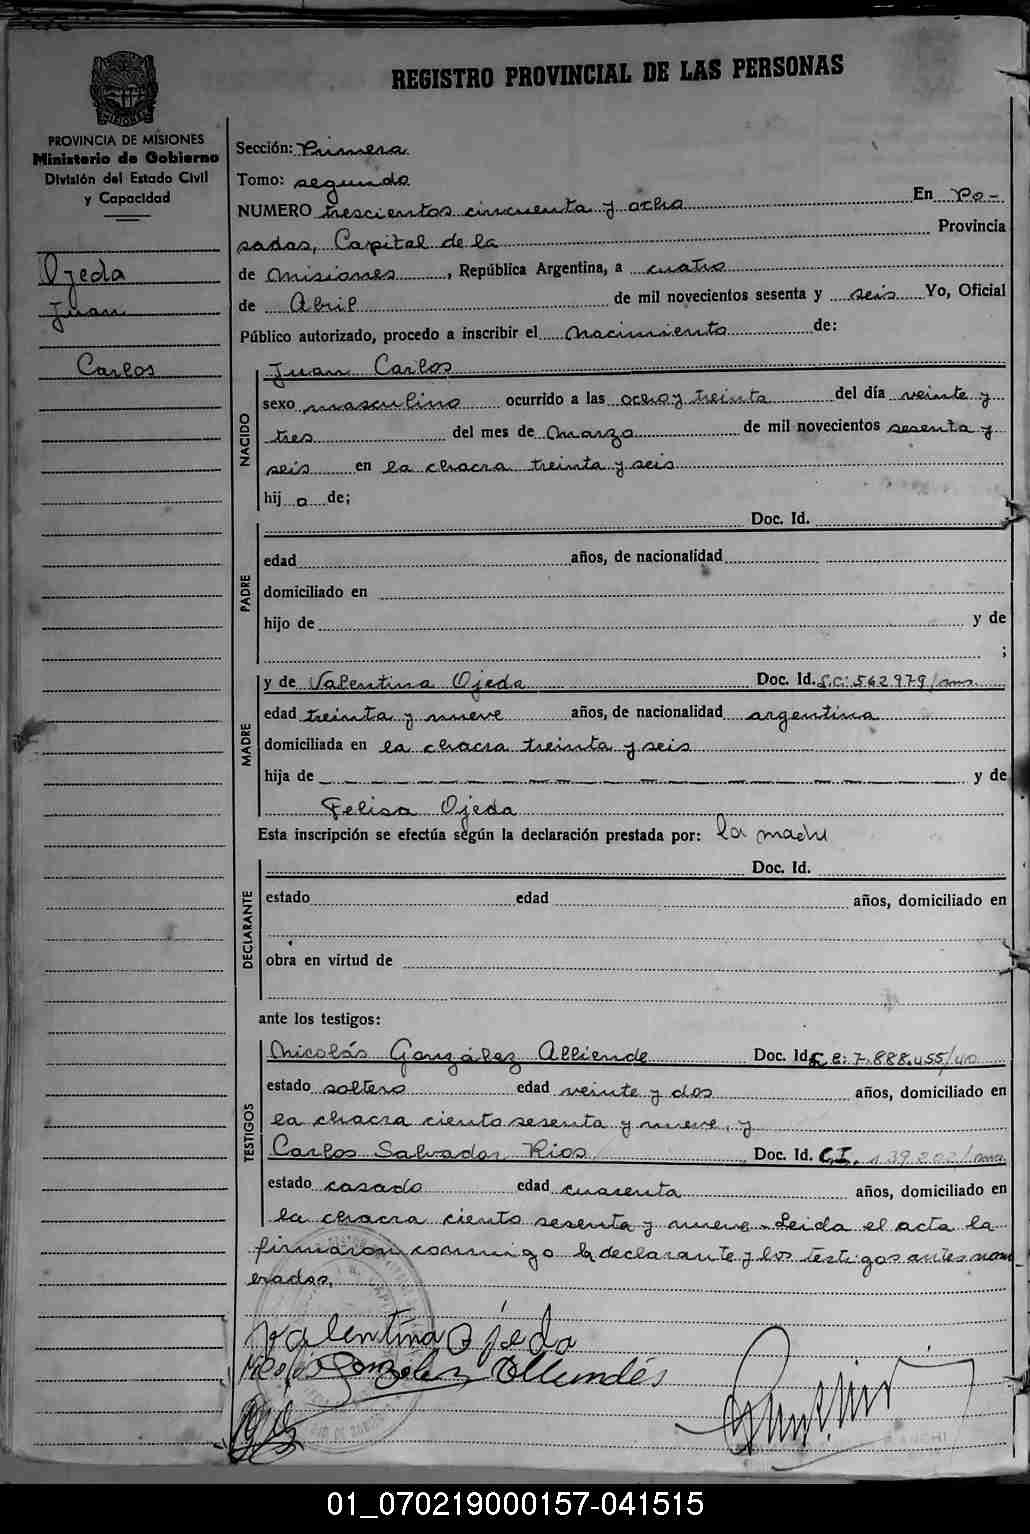 REGISTRO PROVINCIAL DE LAS PERSONAS
MISIONES
PROVINCIA DE MISIONES
Ministerio de Gobierno
División del Estado Civil
y Capacidad
Ojeda
Juan
Carlos
Sección: Primera
Tomo: segundo
NUMERO trescientos cincuenta y ocho En Po-
sadas, Capital de la Provincia
de Misiones, República Argentina, a cuatro
de Abril de mil novecientos sesenta y seis Yo, Oficial
Público autorizado, procedo a inscribir el Nacimiento de:
NACIDO
Juan Carlos
sexo masculino ocurrido a las ocho y treinta del día veinte y
tres del mes de Marzo de mil novecientos sesenta y
seis en la chacra treinta y seis
hij o de;
PADRE
Doc. Id.
edad años, de nacionalidad
domiciliado en
hijo de y de
;
MADRE
y de Valentina Ojeda Doc. Id. 562979
edad treinta y nueve años, de nacionalidad argentina
domiciliada en la chacra treinta y seis
hija de y de
Felisa Ojeda
Esta inscripción se efectúa según la declaración prestada por: la madre
DECLARANTE
Doc. Id.
estado edad años, domiciliado en
obra en virtud de
ante los testigos:
TESTIGOS
Nicolás González Alliende Doc. Id. 7.888.455
estado soltero edad veinte y dos años, domiciliado en
la chacra ciento sesenta y nueve, y
Carlos Salvador Rios Doc. Id. C.I. 139.202
estado casado edad cuarenta años, domiciliado en
la chacra ciento sesenta y nueve. Leida el acta la
firmaron conmigo la declarante y los testigos antes nom
brados.
Valentina Ojeda
01_070219000157-041515